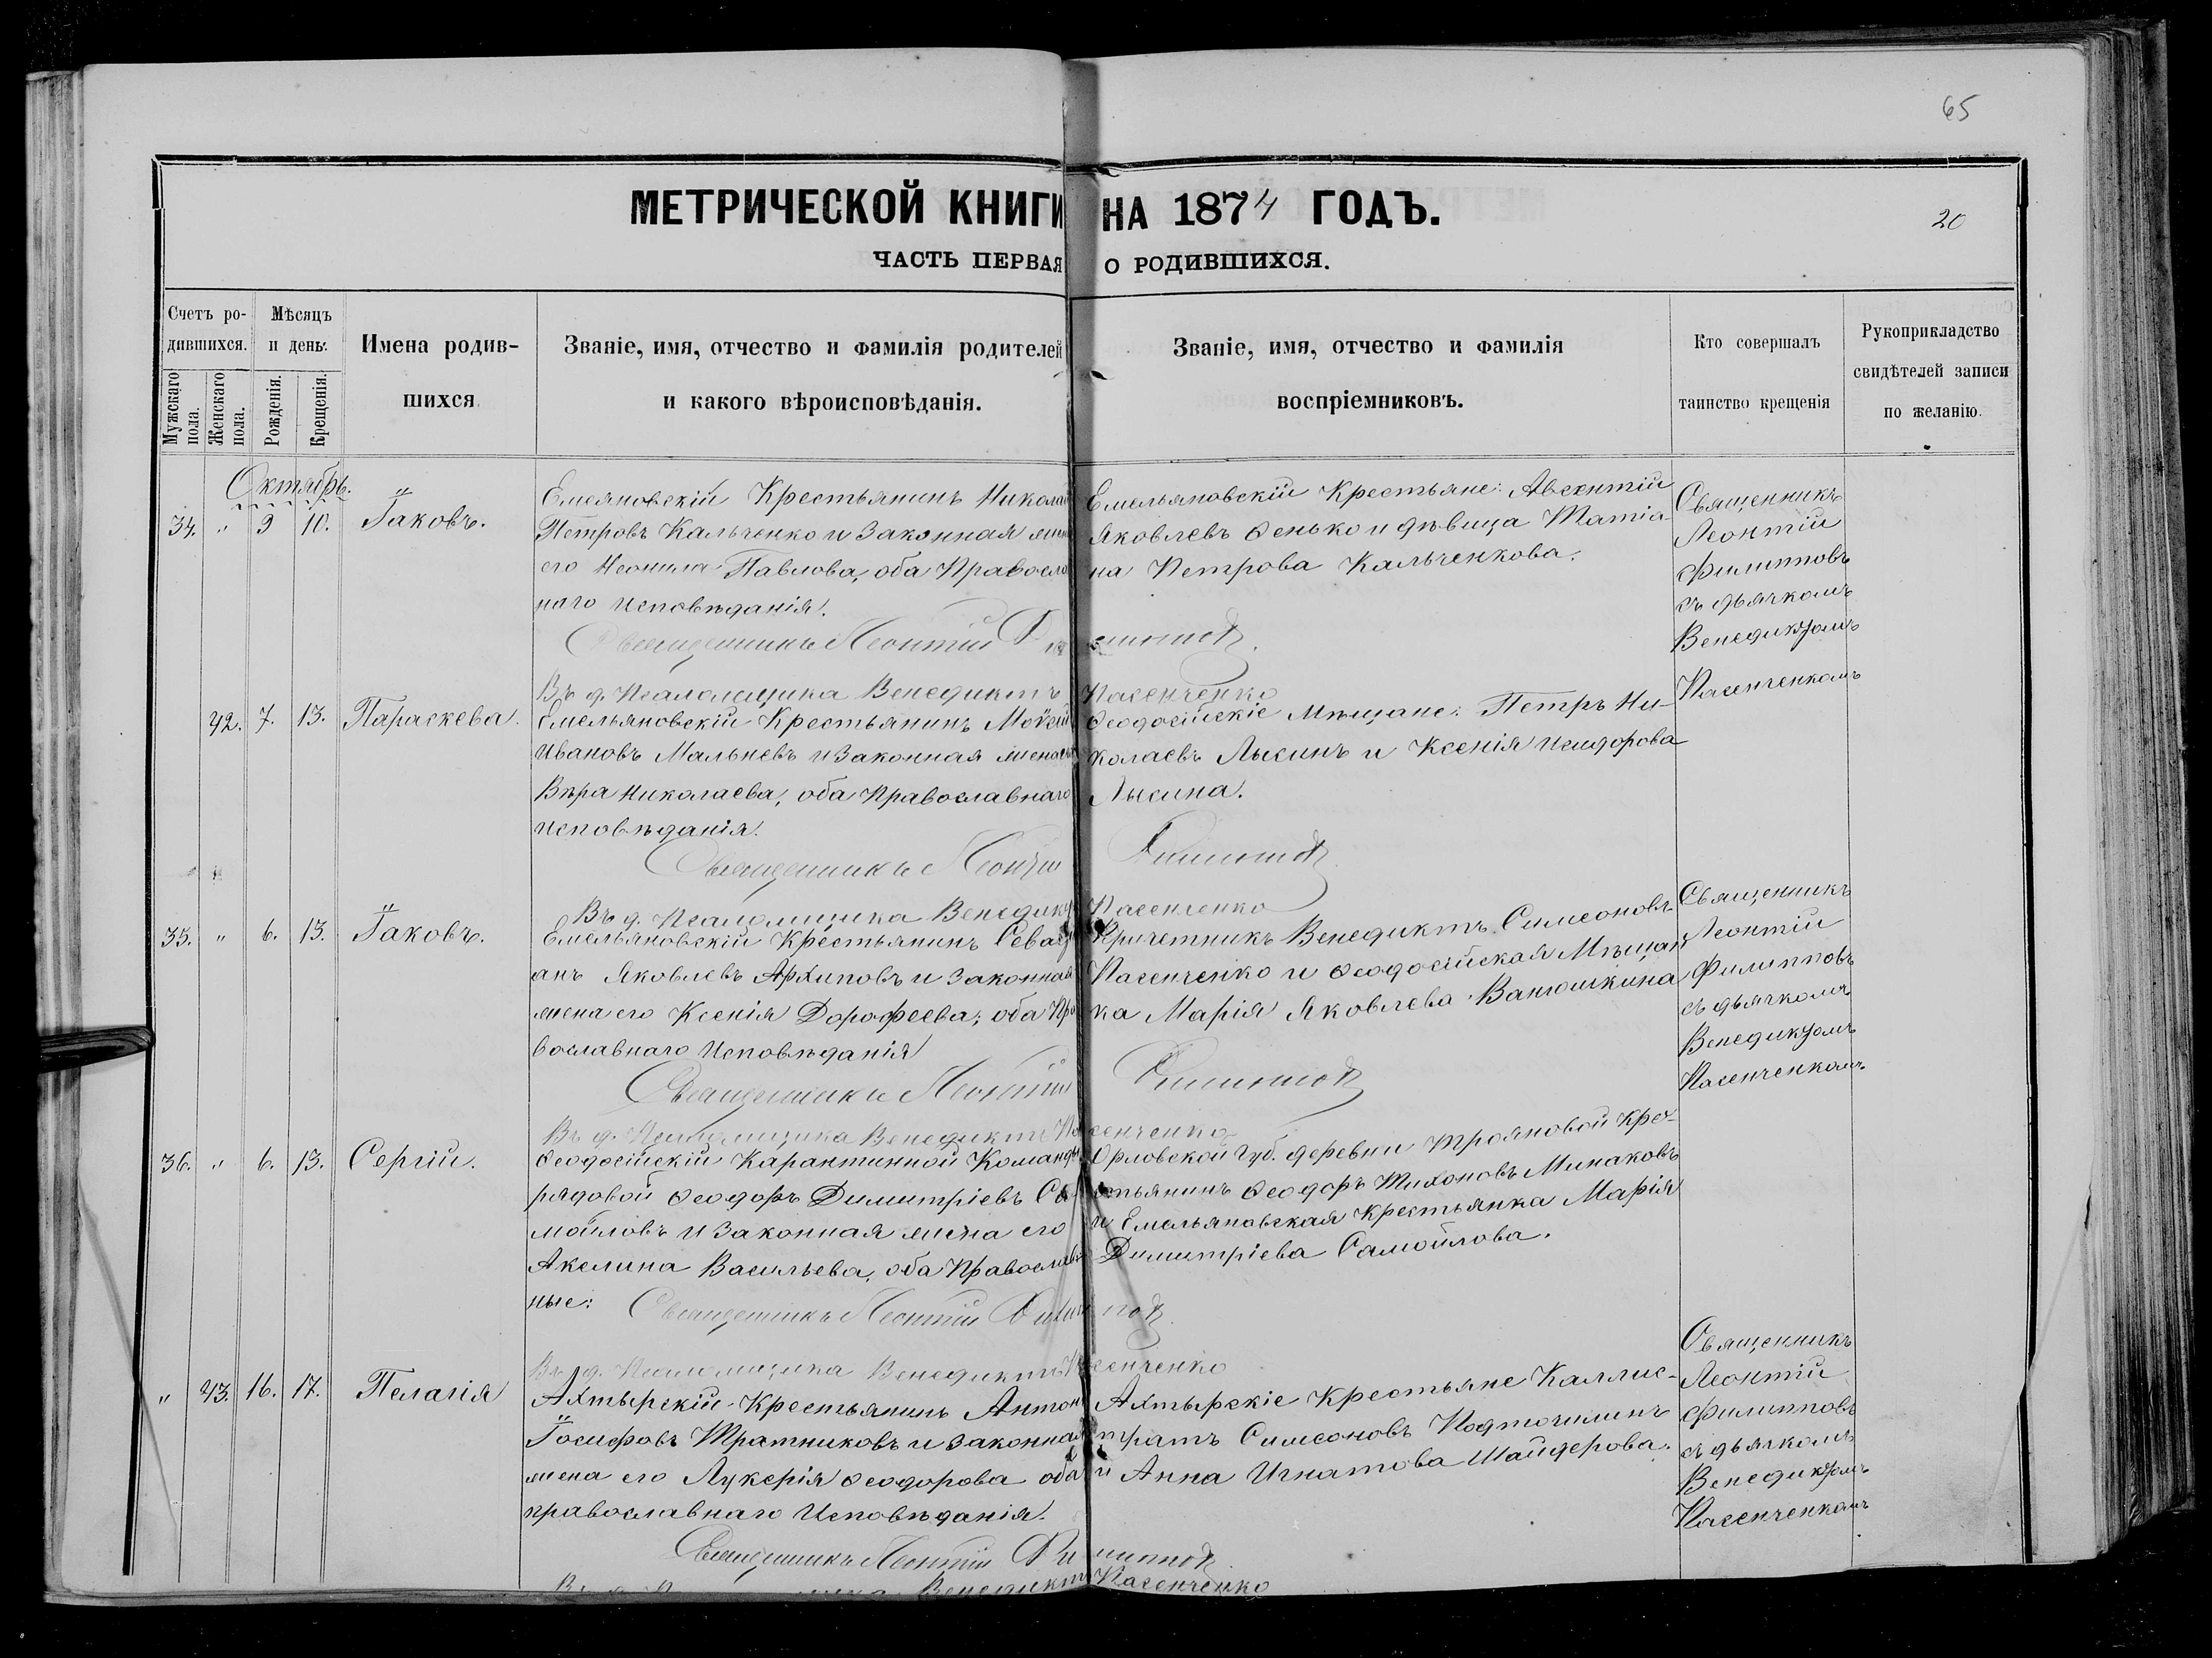 65
МЕТРИЧЕСКОЙ КНИГИ НА 1874 ГОДЪ.
20
ЧАСТЬ ПЕРВАЯ О РОДИВШИХСЯ.
Счетъ ро-
дившихся.
Мужскаго пола.
Женскаго пола.
Мѣсяцъ
и день.
Рожденія.
Крещенія.
Имена родив-
шихся
Званіе, имя, отчество и фамилія родителей
и какого вѣроисповѣданія.
Званіе, имя, отчество и фамилія
воспріемниковъ.
Кто совершалъ
таинство крещенія
Рукоприкладство
свидѣтелей записи
по желанію.
Октябрь.
34. " 9 10. Іаковъ.
Емеяновскій Крестьянинъ Никола
Петровъ Кальченко и Законная
его Неонила Павлова, оба Правосла
наго исповѣданія.
Емельяновскій Крестьяне: Авсентій
Яковлевъ Ѳенько и дѣвица Татіа-
на Петрова Кальченкова.
Священникъ
Леонтій
Филипповъ
съ дьячкомъ
Венедиктомъ
Пасенченкомъ
Священникъ Леонтій Филипповъ.
Въ д. Псаломщика Венедиктъ Пасенченко
42. 7. 13. Параскева.
Емельяновскій Крестьянинъ Моѵсей
Ивановъ Мальневъ и Законная жена
Вѣра Николаева, оба Православнаго
исповѣданія.
Ѳеодосійскіе Мѣщане: Петръ Ни-
колаевъ Лысинъ и Ксенія Исидорова
Лысина.
Священникъ Леонтій Филипповъ
Въ д. Псаломщика Венедиктъ Пасенченко
35. " 6. 13. Іаковъ.
Емельяновскій Крестьянинъ Севасті
анъ Яковлевъ Архиповъ и Законная
жена его Ксенія Дорофеева; оба Пра
вославнаго Исповѣданія
Причетникъ Венедиктъ Симеоновъ
Пасенченко и Ѳеодосійская Мѣщан
ка Марія Яковлева Ванюшкина
Священникъ
Леонтій
Филипповъ
съ дьячкомъ
Венедиктомъ
Пасенченкомъ
Священникъ Леонтій Филипповъ
Въ д. Псаломщика Венедиктъ Пасенченко
36. " 6. 13. Сергій.
Ѳеодосійскій Карантинной Команды
рядовой Ѳеодоръ Димитріевъ Са
мойловъ и Законная жена его
Акелина Васильева, оба Православ
ные:
Орловской Губ. деревни Трояновой Кре-
стьянинъ Ѳеодоръ Тихоновъ Минаковъ
и Емельяновская Крестьянка Марія
Димитріева Самойлова.
Священникъ Леонтій Филипповъ
Въ д. Псаломщика Венедиктъ Пасенченко
" 43. 16. 17. Пелагія
Ахтырскій Крестьянинъ Антонъ
Іосифовъ Тратниковъ и Законная
жена его Лукерія Ѳеодорова оба
православнаго Исповѣданія.
Ахтырскіе Крестьяне Каллис-
тратъ Симеоновъ Подточилинъ
и Анна Игнатова Шайдерова.
Священникъ
Леонтій
Филипповъ
съ дьячкомъ
Венедиктомъ
Пасенченкомъ
Священникъ Леонтій Филипповъ
Венедиктъ Пасенченко